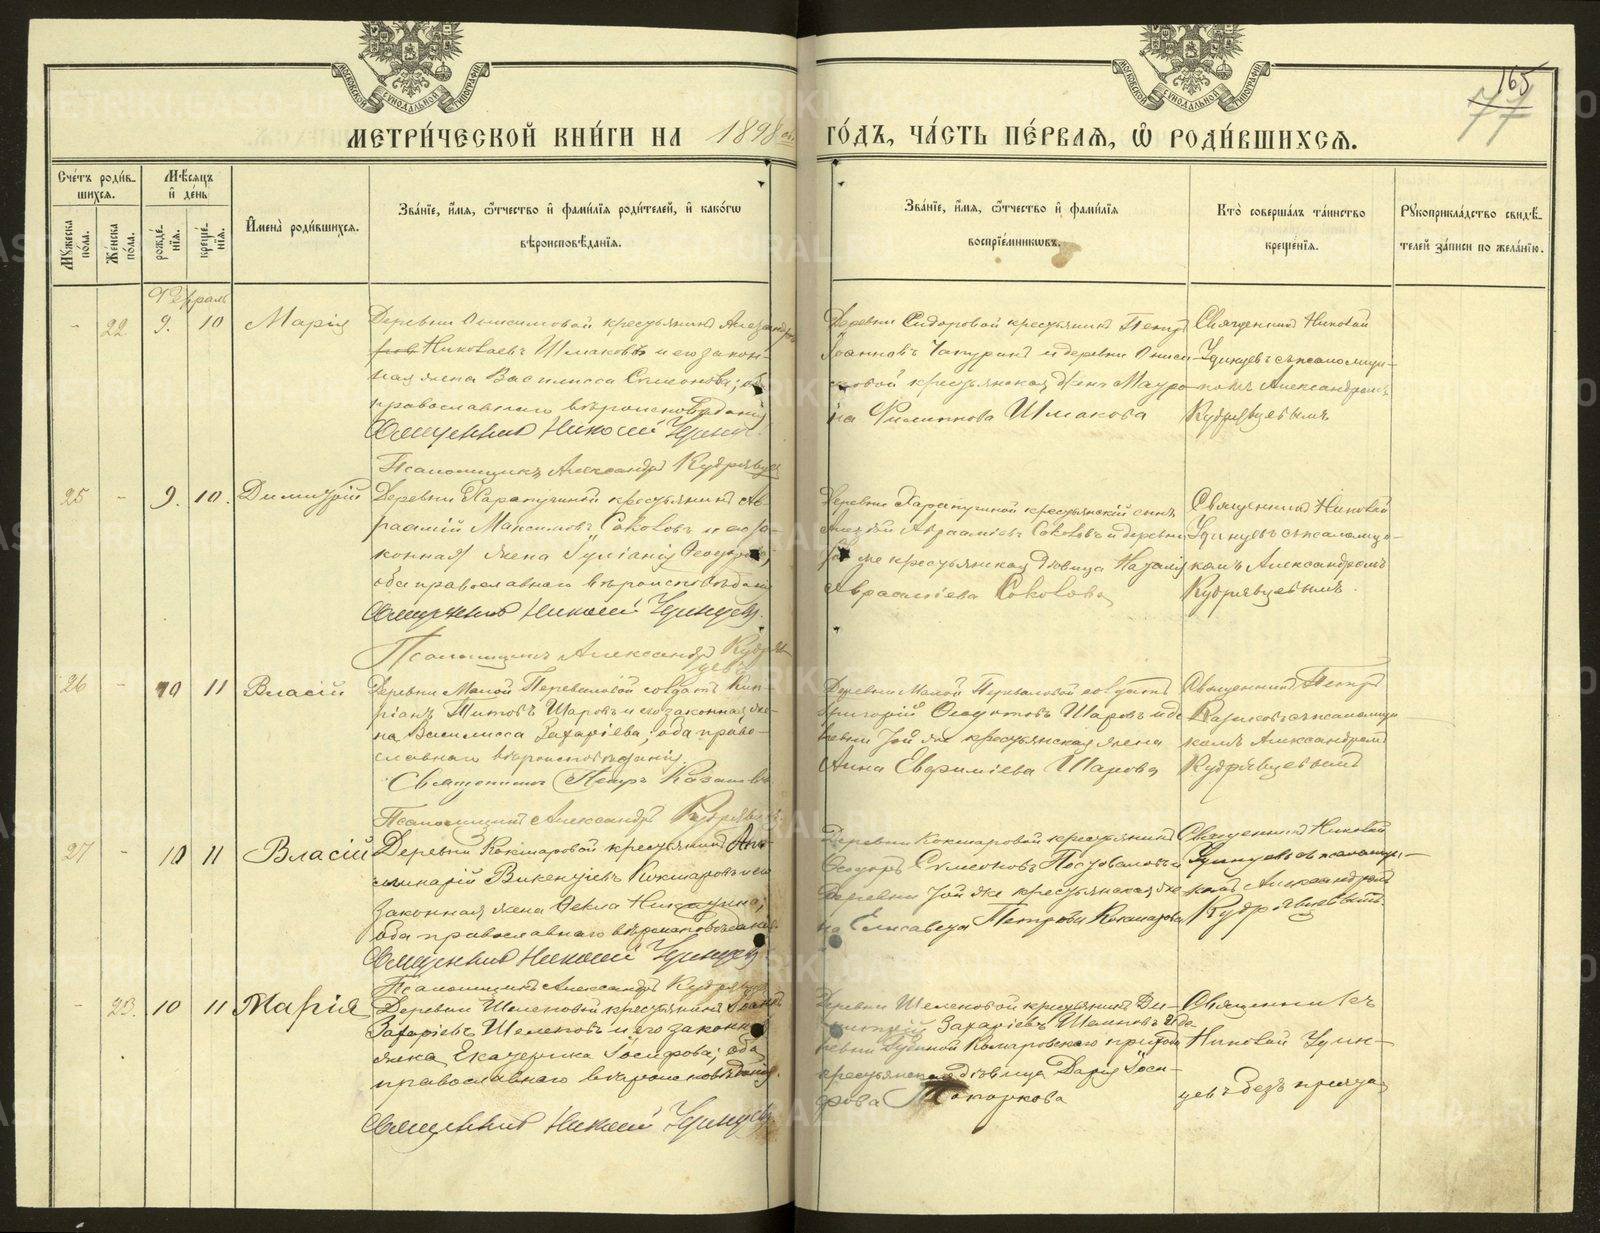 МОСКОВСКОЙ СѴНОДАЛЬНОЙ ТИПОГРАФІИ
МОСКОВСКОЙ СѴНОДАЛЬНОЙ ТИПОГРАФІИ
165
77
МЕТРИ́ЧЕСКОЙ КНИ́ГИ НА 1898 ГО́ДЪ, ЧА́СТЬ ПЕ́РВАѦ, Ѡ РОДИ́ВШИХСѦ.
Сче́тъ роди́в-
шихсѧ.
Му́жеска по́ла.
Же́нска по́ла.
Мѣ́сѧцъ и де́нь
рожде́-нїѧ.
креще́-нїѧ.
Имена̀ роди́вшихсѧ.
Зва́нїе, и́мѧ, ѻ́тчество и фами́лїѧ роди́телей, и како́гѡ
вѣроисповѣ́данїѧ.
Зва́нїе, и́мѧ, ѻ́тчество и фами́лїѧ
воспрїе́мникѡвъ.
Кто̀ соверша́лъ та́инство
креще́нїѧ.
Рꙋкоприкла́дство свидѣ́-
телей за́писи по жела́нїю.
Февраль
- 22 9. 10 Марія
Деревни Анисимовой крестьянинъ Александръ
Николаевъ Шмаковъ и его закон-
ная жена Василисса Симонова; оба
православнаго вѣроисповѣданія
Священникъ Николай Удинц
Псаломщикъ Александръ Кудрявцев
Деревни Сидоровой крестьянинъ Петръ
Іоанновъ Чапуринъ и деревни Аниси-
мовой крестьянская Мавро
на Филиппова Шмакова
Священникъ Николай
Удинцевъ съ псаломщи-
комъ Александромъ
Кудрявцевымъ
25 - 9. 10. Димитрій
Деревни крестьянинъ Ав-
раамій Максимовъ Соколовъ и его за-
конная жена Іуліанія Ѳеодорова,
оба православнаго вѣроисповѣданія
Священникъ Николай Удинцевъ
Псаломщикъ Александръ Кудряв
цевъ
Деревни крестьянскій сынъ
Авраамиевъ Соколовъ и деревни
той же крестьянская дѣвица Наталія
Авраамиева Соколова
Священникъ Николай
Удинцевъ съ псаломщи-
комъ Александромъ
Кудрявцевымъ.
26 - 10 11 Власій
Деревни Малой Переваловой солдатъ Кип-
ріанъ Титовъ Шаровъ и его законная же-
на Василисса Захаріева, оба право-
славнаго вѣроисповѣданія.
Священникъ Петръ
Псаломщикъ Александръ Кудрявцевъ
Деревни Малой Переваловой солдатъ
Григорій Шаровъ и де-
ревни той же крестьянская жена
Анна Евфиміева Шарова
Священникъ Петръ
съ псаломщи-
комъ Александромъ
Кудрявцевымъ
27 - 10 11 Власій
Деревни Кокшаровой крестьянинъ Апол-
линарій Викентіевъ Кокшаровъ и его
законная жена Ѳекла Никитина;
оба православнаго вѣроисповѣданія
Священникъ Николай Удинцевъ
Псаломщикъ Александръ Кудрявцев
Деревни Кокшаровой крестьянинъ
Ѳеодоръ Симоновъ Постоваловъ и
деревни той же крестьянская же-
на Елисавета Петрова Кокшарова
Священникъ Николай
Удинцевъ съ псаломщи-
комъ Александромъ
Кудрявцевымъ.
- 23. 10 11 Марія
Деревни Шелеповой крестьянинъ Іоаннъ
Захаріевъ Шелеповъ и его законная
жена Екатерина Іосифова; оба
православнаго вѣроисповѣданія.
Священникъ Николай Удинцевъ
Деревни Шелеповой крестьянинъ Ди-
митрій Захаріевъ Шелеповъ и де-
ревни Комаровскаго прихода
крестьянская дѣвица Дарія Іоси-
фова Топоркова
Священникъ
Николай Удин-
цевъ безъ причта